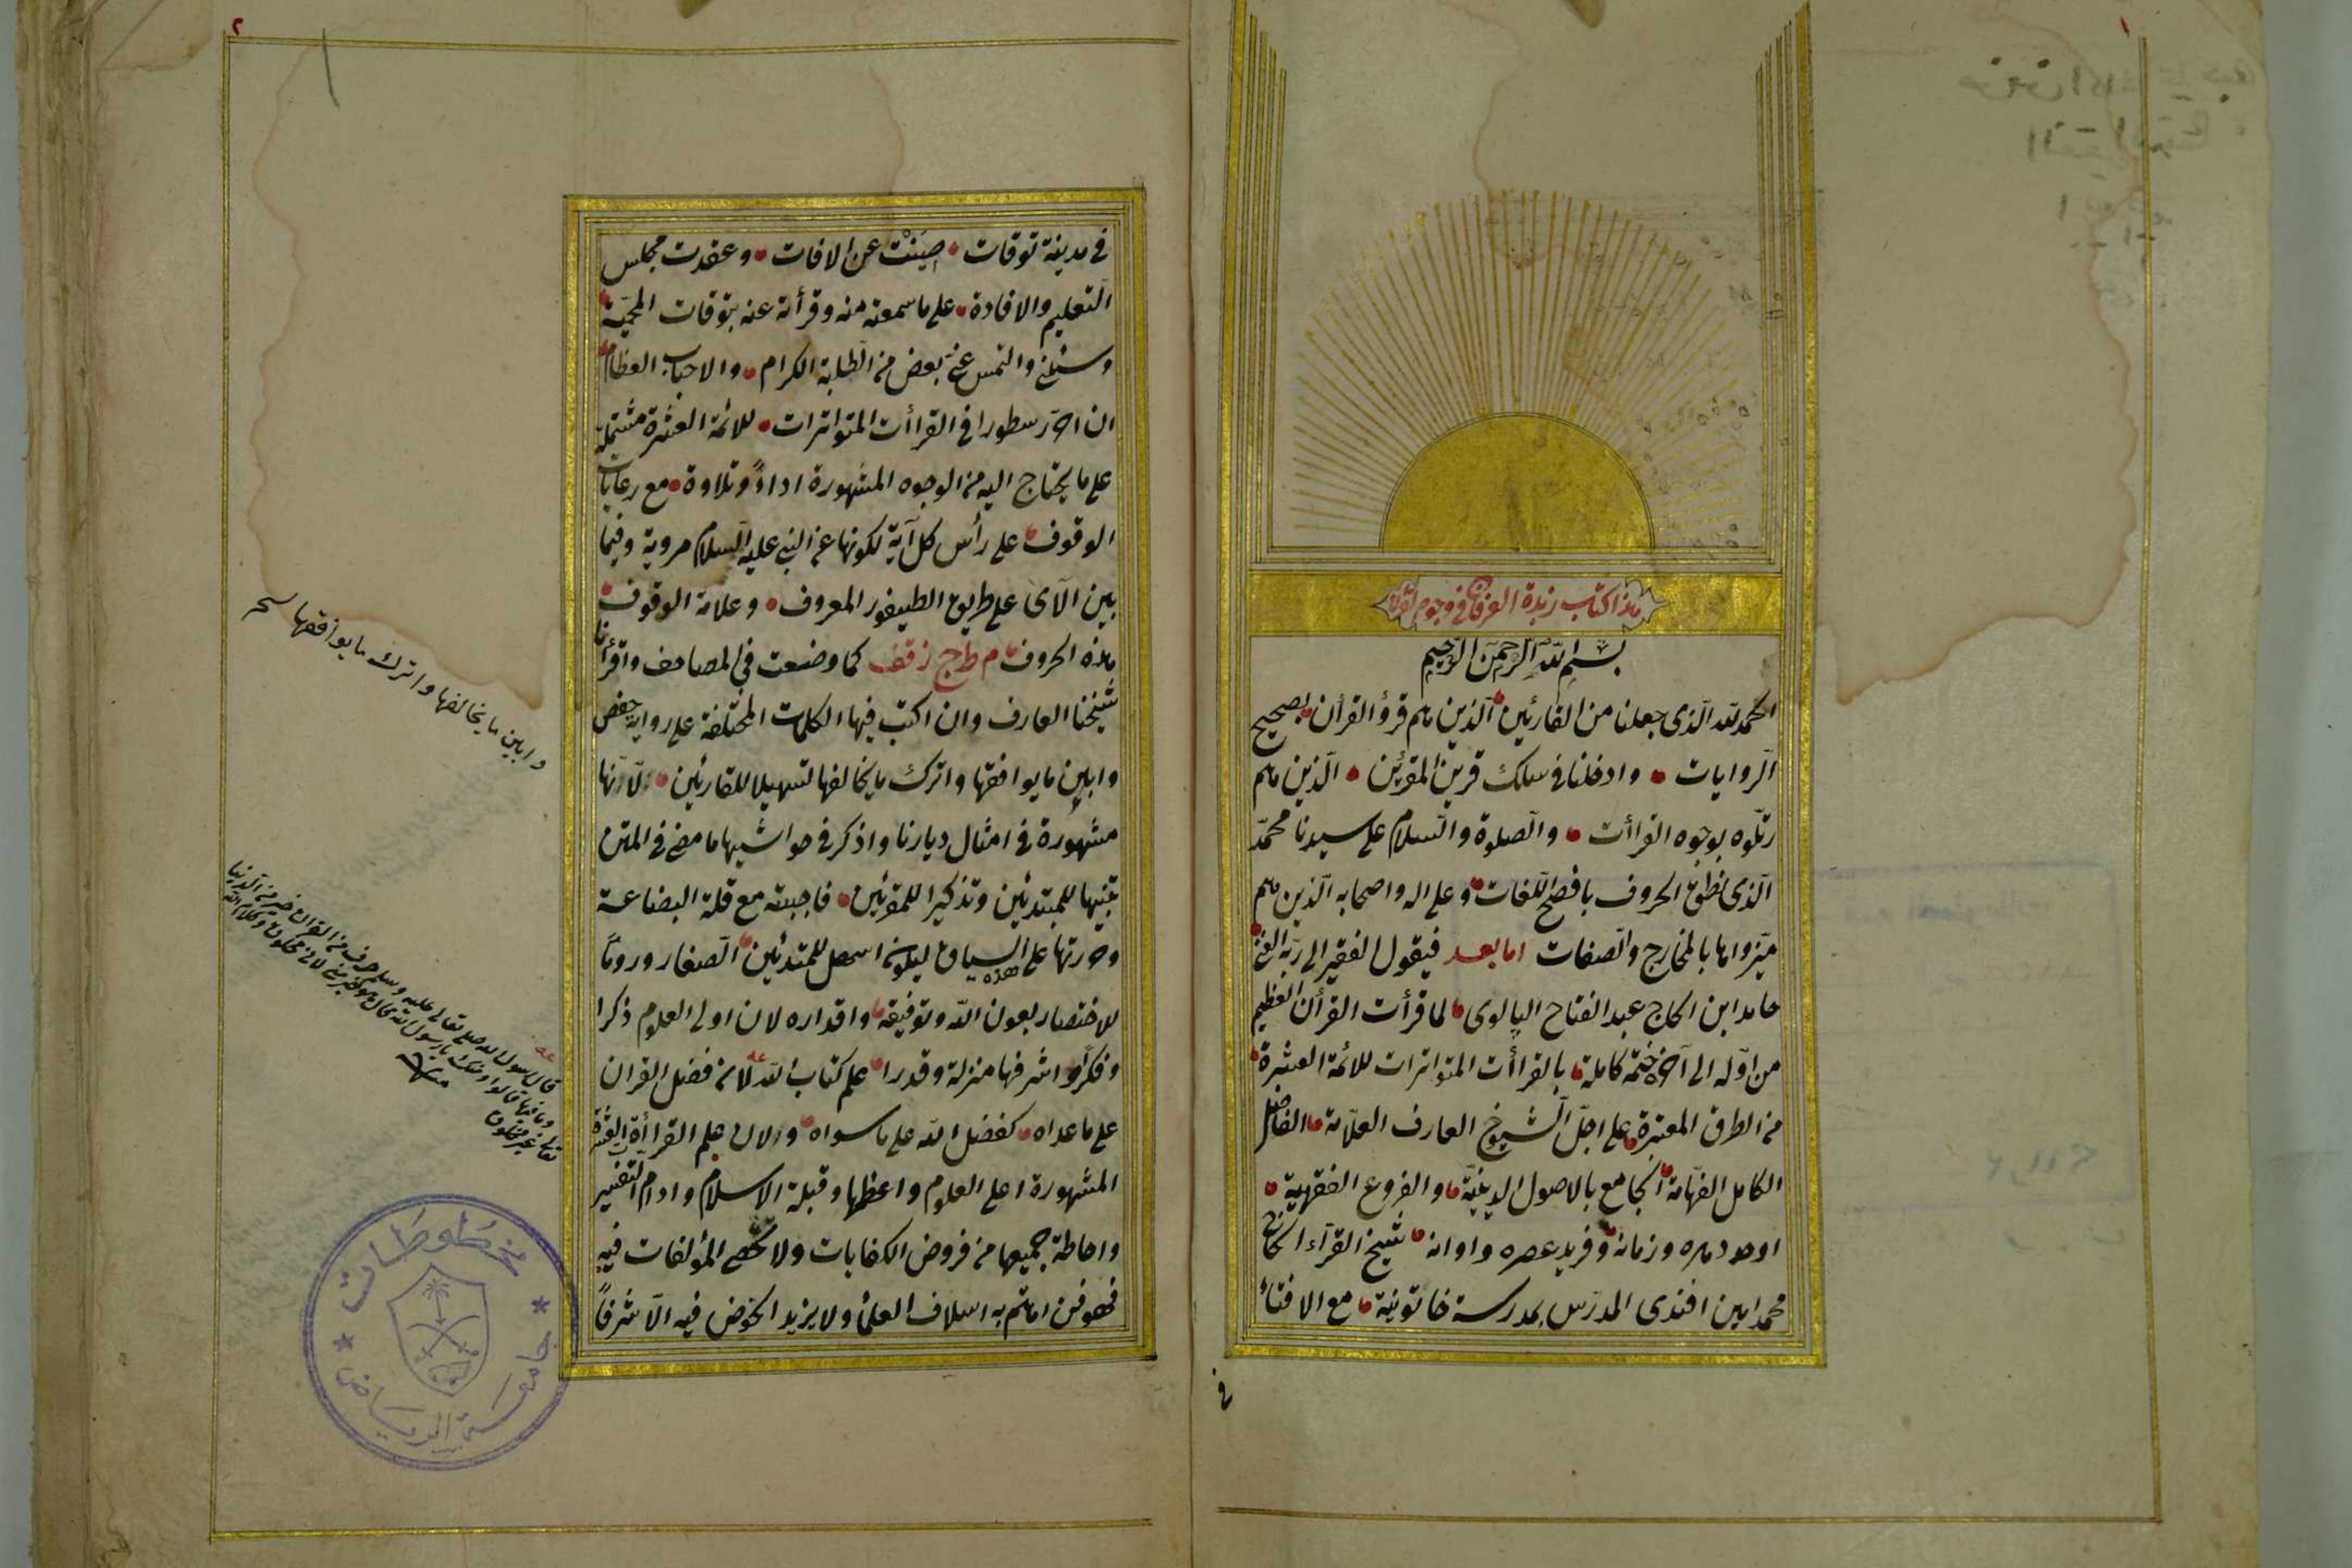 ١
هذا كتاب زبدة العرفان فى وجوه القرآن
بسم الله الرحمن الرحيم
الحمد لله الّذى جعلنا من القارئين الّذين هم قرؤ القرآن بصحيح
الروايات وادخلنا فى سلك قرين المقرئين الّذين هم
رتّلوه بوجوه القراأت والصّلوة والسّلام على سيدنا محمّد
الّذى نطق الحروف بافصح اللّغات وعلى اله واصحابه الّذين هم
ميّزواها بالمخارج والصّفات اما بعد فيقول الفقير الى ربّه الغنى
حامد ابن الحاج عبد الفتاح البالوى لما قرأت القرأن العظيم
من اوّله الى آخره ختمة كاملة بالقراأت المتواترات للائمة العشرة
من الطرق المعتبرة على اجلّ الشيوخ العارف العلّامة الفاضل
الكامل الفهّامة الجامع بالاصول الدينيّة والفروع الفقهية
اوحد دهره وزمانه وفريد عصره واوانه شيخ القرّاء الحاج
محمد امين افندى المدرّس بمدرسة خاتونية مع الافتاء
فى
٢
فى مدينة توقات صينت عن الافات وعقدت مجلس
التّعليم والافادة على ما سمعته منه وقرأته عنه بتوقات المحميّة
وسئلنى والتمس عنى بعض من الطّلبة الكرام والاحباب العظام
ان احرّر سطورا فى القراأت المتواترات للائمة العشرة مشتملة
على ما يحتاج اليه من الوجوه المشهورة اداءً وتلاوة مع رعايات
الوقوف على رأس كل آية لكونها عن النبى عليه السّلام مروية وفيما
بين الآى على طريق الطيفور المعروف وعلامة الوقوف
هذه الحروف م ط ج ز ق ف كما وضعت فى المصاحف واقرأنا
شيخنا العارف وان اكتب فيها الكلمات المختلفة على رواية حفص
وابين ما يوافقها واترك ما يخالفها تسهيلا للقارئين لانّها
مشهورة فى امثال ديارنا واذكر فى حواشيها ما مضى فى المتن
تنبيها للمبتدئين وتذكيرا للمقرئين فاجبته مع قلة البضاعة
وحررتها على هذه السياق ليكون اسهل للمبتدئين الصّغار وروما
للاختصار بعون الله وتوفيقه واقداره لان اولى العلوم ذكرا
وفكرا واشرفها منزلة وقدرا علم كتاب الله لان فضل القران
على ما عداه كفضل الله على ما سواه والان علم القراأة العشرة
المشهورة اعلى العلوم واعظمها وقبلة الاسلام وادام التفسير
واحاطة جميعها من فروض الكفايات ولا تحصى المؤلفات فيه
فهو فن اهتم به اسلاف العلماء ولا يزيد الخوض فيه الّا شرفاً
وابين ما يخالفها واترك ما يوافقها نسخه
قال رسول الله صلى تعالى عليه وسلم حرف من القران خير من الدنيا
وما فيها قالوا ومنك يا رسول الله قال هو خير منى لانى مخلوق وكلام الله
تعالى غير مخلوق
منه
جامعة الرياض
مخطوطات